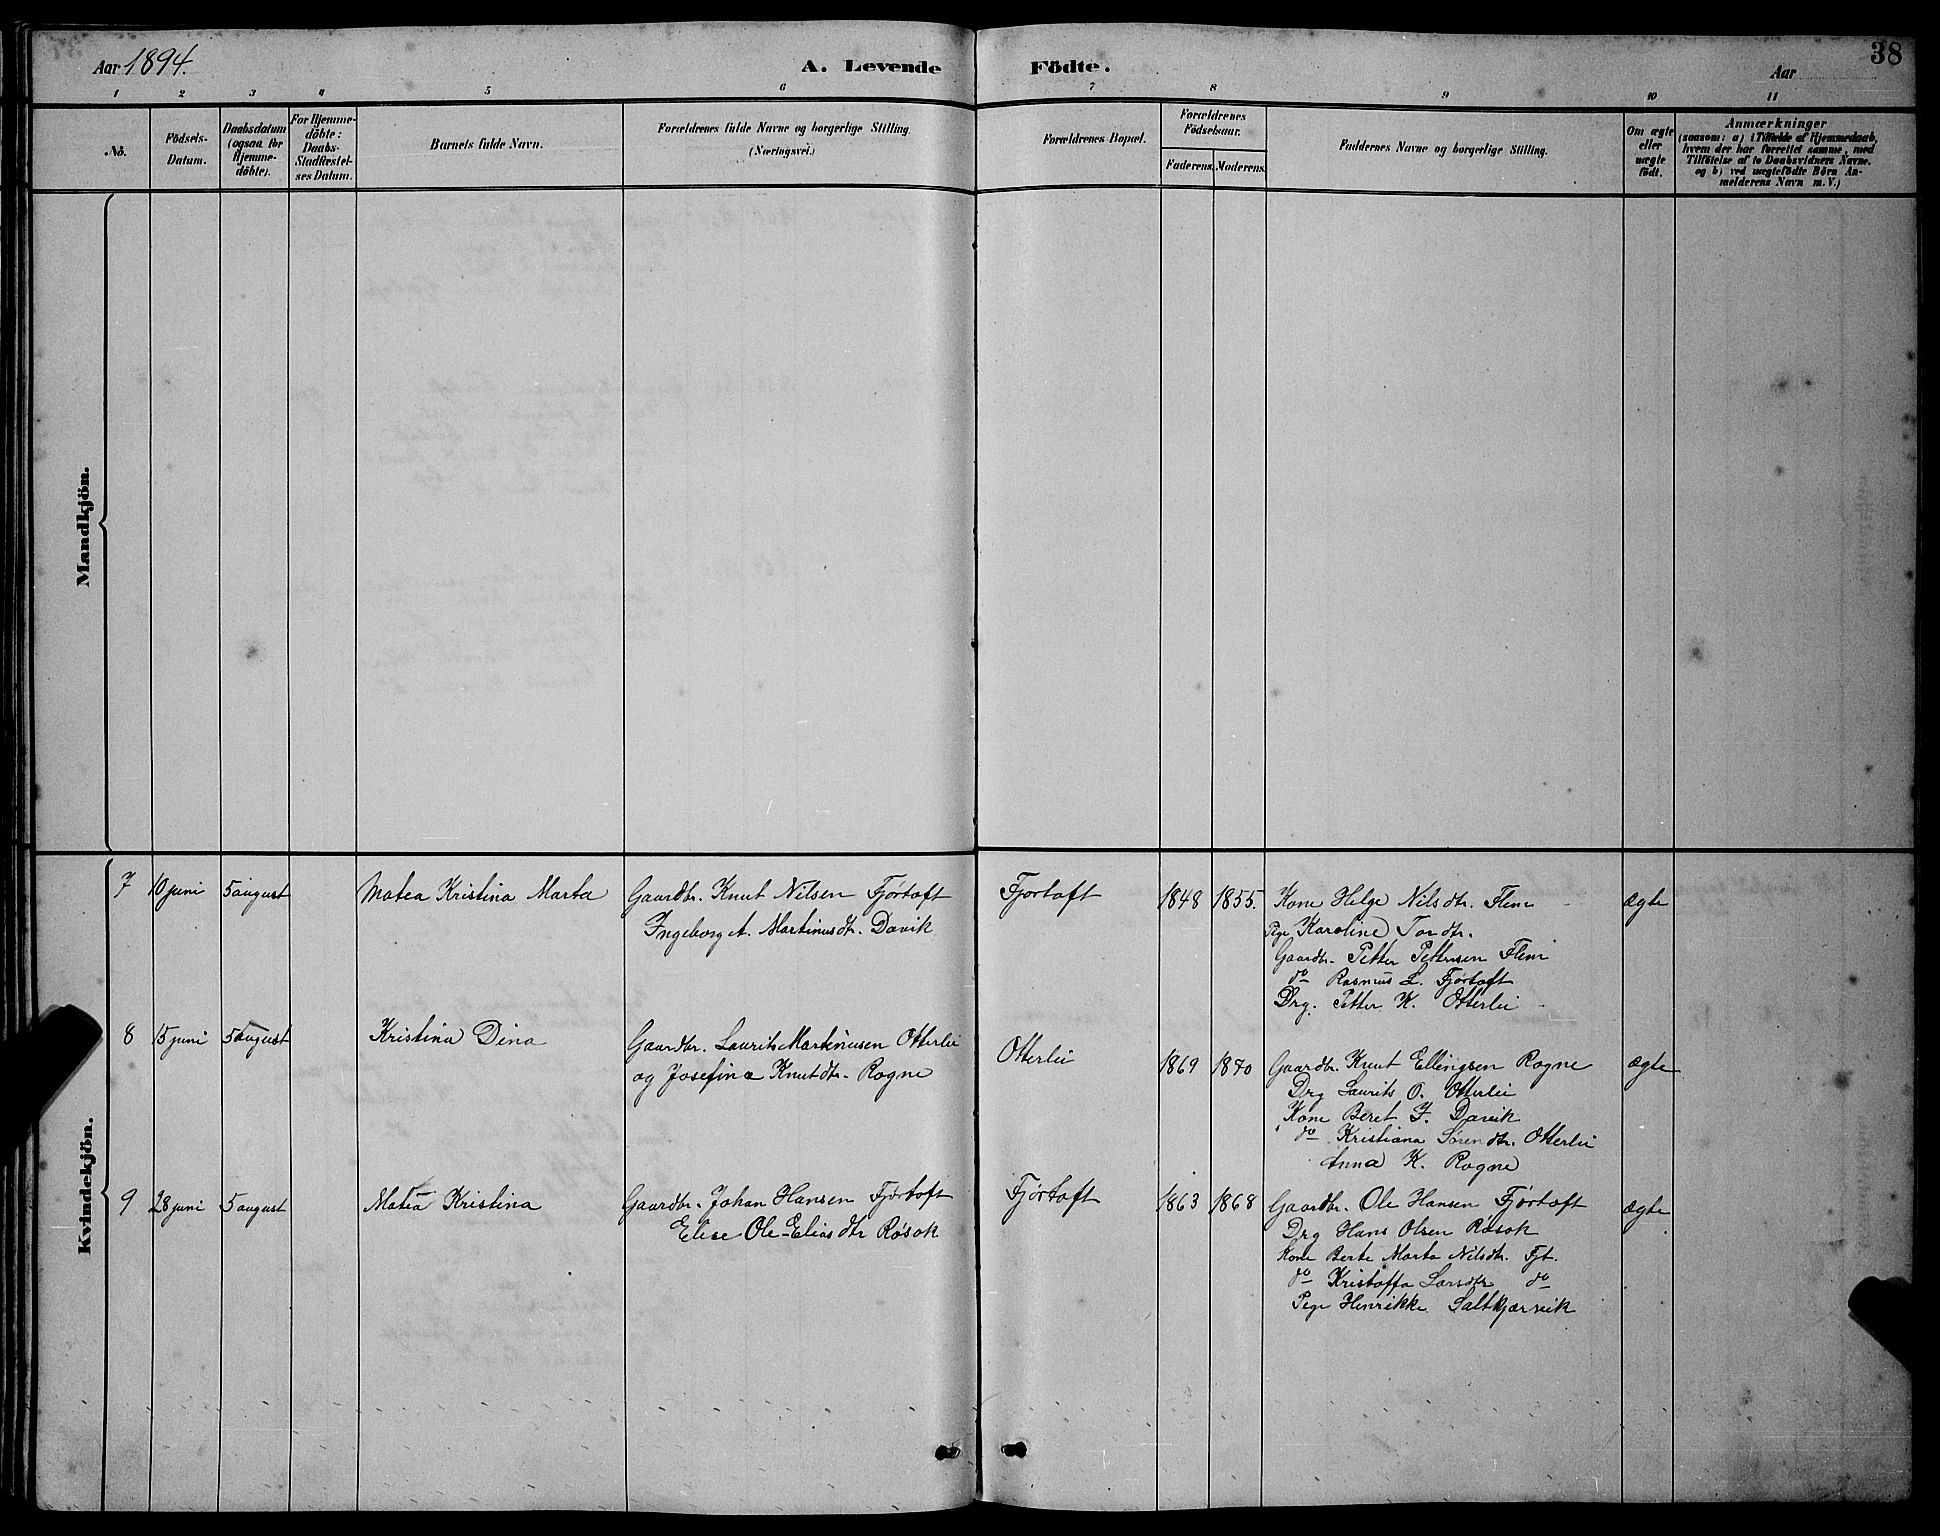 Aar 1894.
A. Levende Födte.
Aar
38
1 2 3 4 5 6 7 8 9 10 11
No.
Födsels-
Datum.
Daabsdatum
(ogsaa for
Hjemme-
döbte).
For Hjemme-
döbte:
Daabs-
Stadfæstel-
ses Datum.
Barnets fulde Navn.
Forældrenes fulde Navne og borgerlige Stilling
(Næringsvei.)
Forældrenes Bopæl.
Forældrenes
Födselsaar.
Faderens. Moderens.
Faddernes Navne og borgerlige Stilling.
Om ægte
eller
uægte
födt.
Anmærkninger
(saasom: a) i Tilfælde af Hjemmedaab,
hvem der har forrettet samme, med
Tilföielse af to Daabsvidners Navne.
og b) ved uægtefödte Börn An-
melderens Navn m. V.)
Mandkjön.
Kvindekjön.
7 10 juni 5 august Matea Kristina Marta
Gaardbr. Knut Nilsen Fjørtoft
Ingeborg A. Martinusdtr. Davik
Fjortoft 1848 1855.
Kone Helge Nilsdtr. Flem
Pige Karoline Tordtr.
Gaardbr. Petter Pettersen Flem
do Rasmus L. Fjørtoft
Drg. Petter K. Otterlei
Ægte
8 15 juni 5 august Kristina Dina
Gaardbr. Laurits Martinusen Otterlei
og Josefina Knutdtr. Rogne
Otterlei 1869 1870
Gaardbr. Knut Ellingsen Rogne
Drg Laurits O. Otterlei
Kone Beret I. Davik
do Kristiana Sørendtr. Otterlei
Anna K. Rogne
Ægte
9 28 juni 5 august Matea Kristina
Gaardbr. Johan Hansen Fjørtoft
Elise Ole-Eliasdtr Røsok
Fjørtoft 1863 1868
Gaardbr. Ole Hansen Fjørtoft
Drg Hans Olsen Røsok
Kone Berte Marta Nilsdtr. Fjt.
do Kristoffa Larsdtr do
Pige Henrikke Saltkjærvik
Ægte